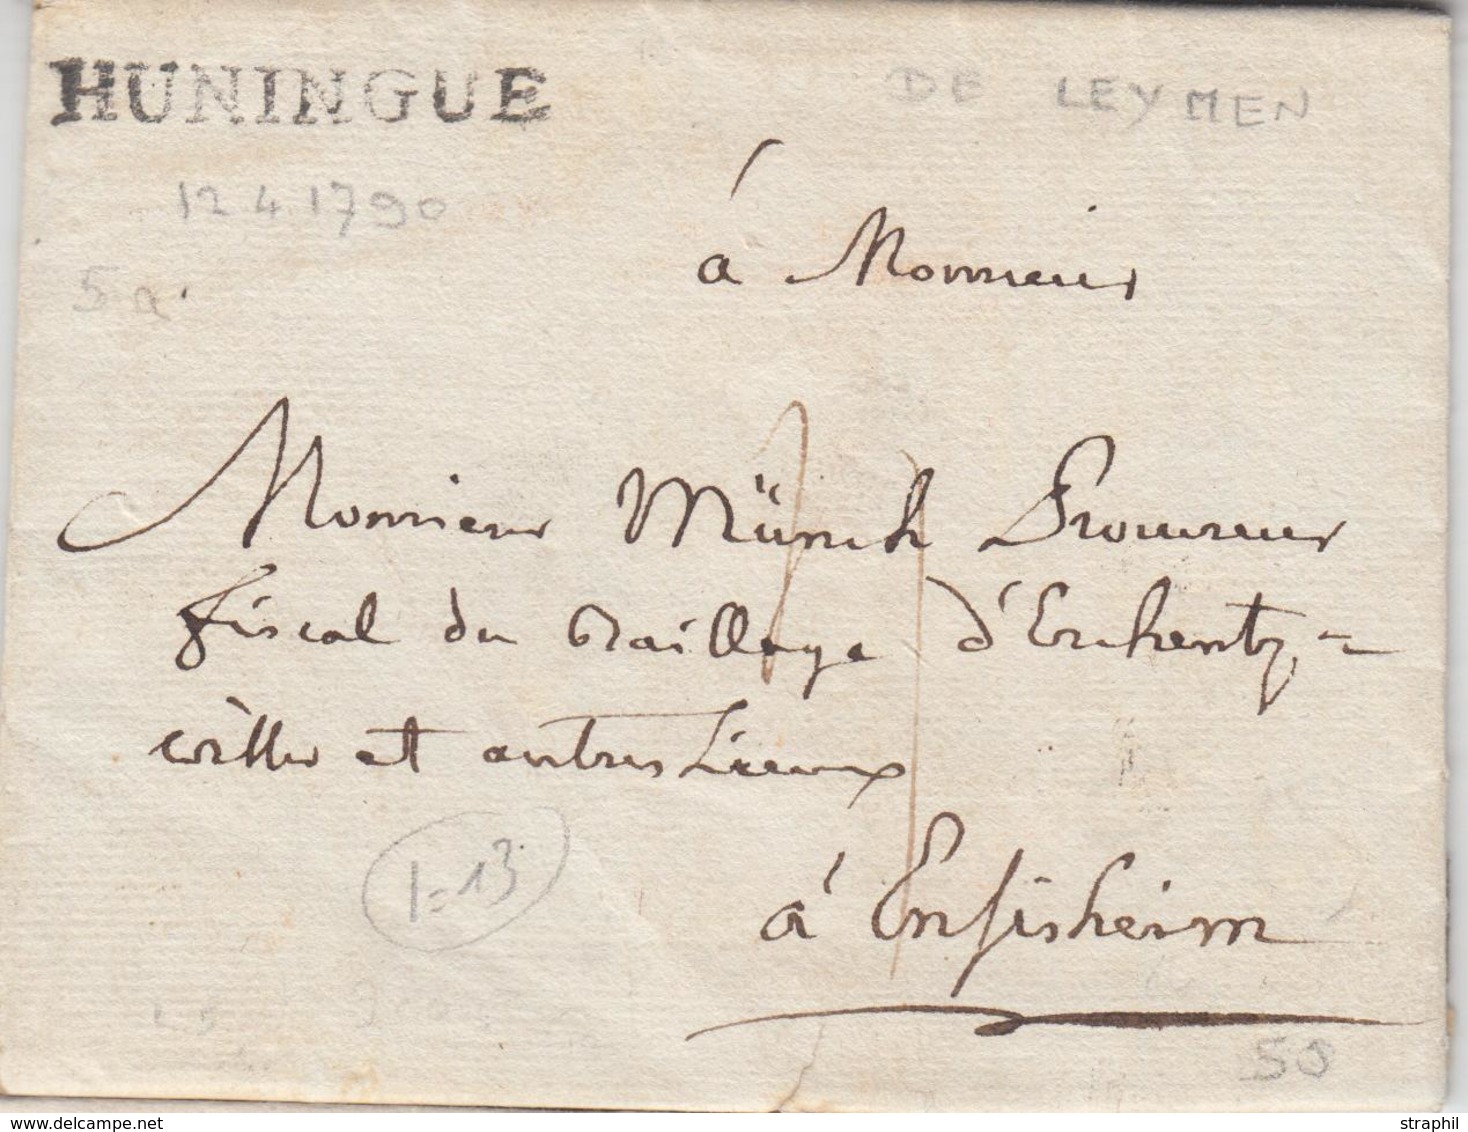 HUNINGUE
DE LEYMEN
12 4 1790
5 a.
á Monsieur
Monsieur Münch Procureur
fiscal du Bailliage d'Enschentz=
willer et autres Lieux
1=13
á Ensisheim
50
www.delcampe.net
straphil